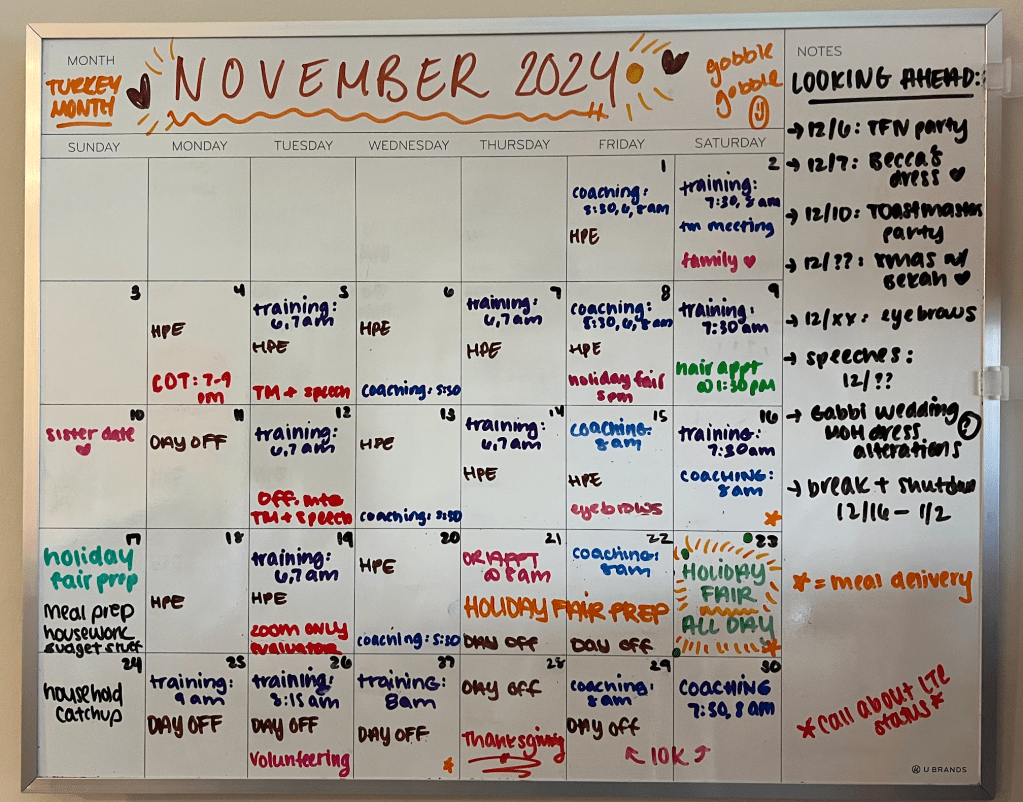 MONTH
TURKEY
MONTH
NOVEMBER 2024
gobble
gobble
SUNDAY
MONDAY
TUESDAY
WEDNESDAY
THURSDAY
FRIDAY
SATURDAY
1
coaching:
5:30, 6, 8am
HPE
2
training:
7:30, 8am
tm meeting
family
3
4
HPE
COT: 7-9
pm
5
training:
6,7am
HPE
TM + speech
6
HPE
coaching: 5:30
7
training:
6,7am
HPE
8
coaching:
5:30, 6, 8am
HPE
holiday fair
5pm
9
training:
7:30am
hair appt
@1:30pm
10
sister date
11
DAY OFF
12
training:
6,7am
Off. mtg
TM + speech
13
HPE
coaching: 5:30
14
training:
6,7am
HPE
15
coaching:
8am
HPE
eyebrows
16
training:
7:30am
COACHING:
8am
17
holiday
fair prep
meal prep
housework
budget stuff
18
HPE
19
training:
6,7am
HPE
zoom only
evaluator
20
HPE
coaching: 5:30
21
DR APPT
@ 8am
HOLIDAY FAIR PREP
DAY OFF
22
coaching:
8am
DAY OFF
23
HOLIDAY
FAIR
ALL DAY
24
household
catchup
25
training:
9am
DAY OFF
26
training:
8:15am
DAY OFF
Volunteering
27
training:
8am
DAY OFF
28
DAY OFF
Thanksgiving
29
coaching:
8am
DAY OFF
10K
30
COACHING
7:30, 8am
NOTES
LOOKING AHEAD:
→ 12/6: TFN party
→ 12/7: Becca's
dress
→ 12/10: Toastmaster
party
→ 12/??: xmas w/
Bekah
→ 12/xx: eyebrows
→ speeches:
12/??
→ Gabbi wedding
MOH dress
alterations
?
→ break + shutdown
12/16 - 1/2
* = meal delivery
*call about LTC
status*
U BRANDS